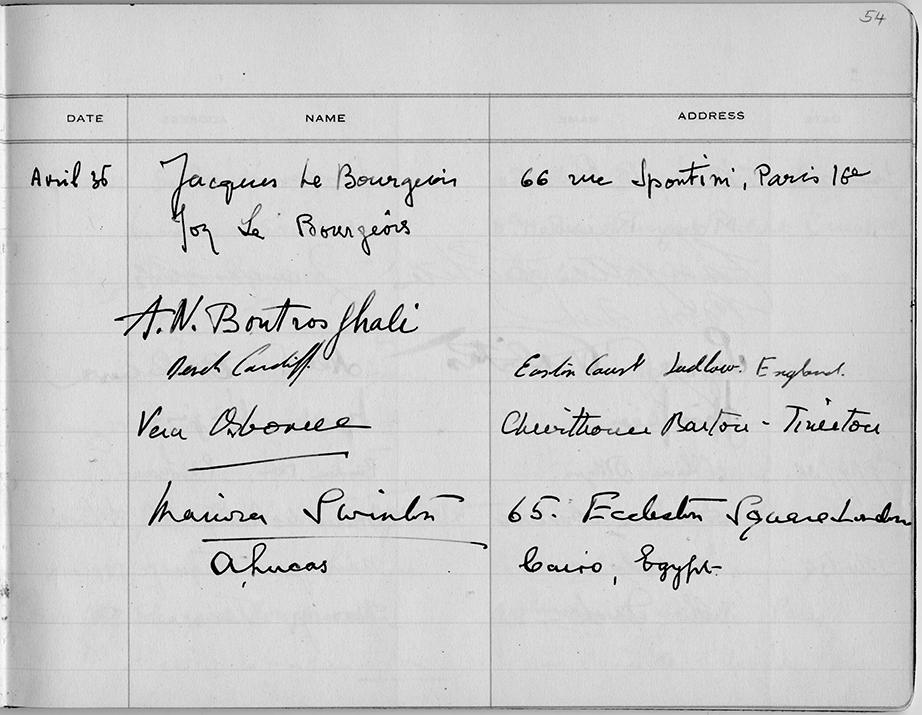 54
DATE NAME ADDRESS
Avril 36 Jacques Le Bourgeois 66 rue Spontini, Paris 16e
Joy Le Bourgeois
A. N. Boutros Ghali
Cardiff. Easton Court Ludlow. England.
Vera Osborne Barton - Tiverton
Swinton 65. Eccleston Square London
A Lucas Cairo, Egypt